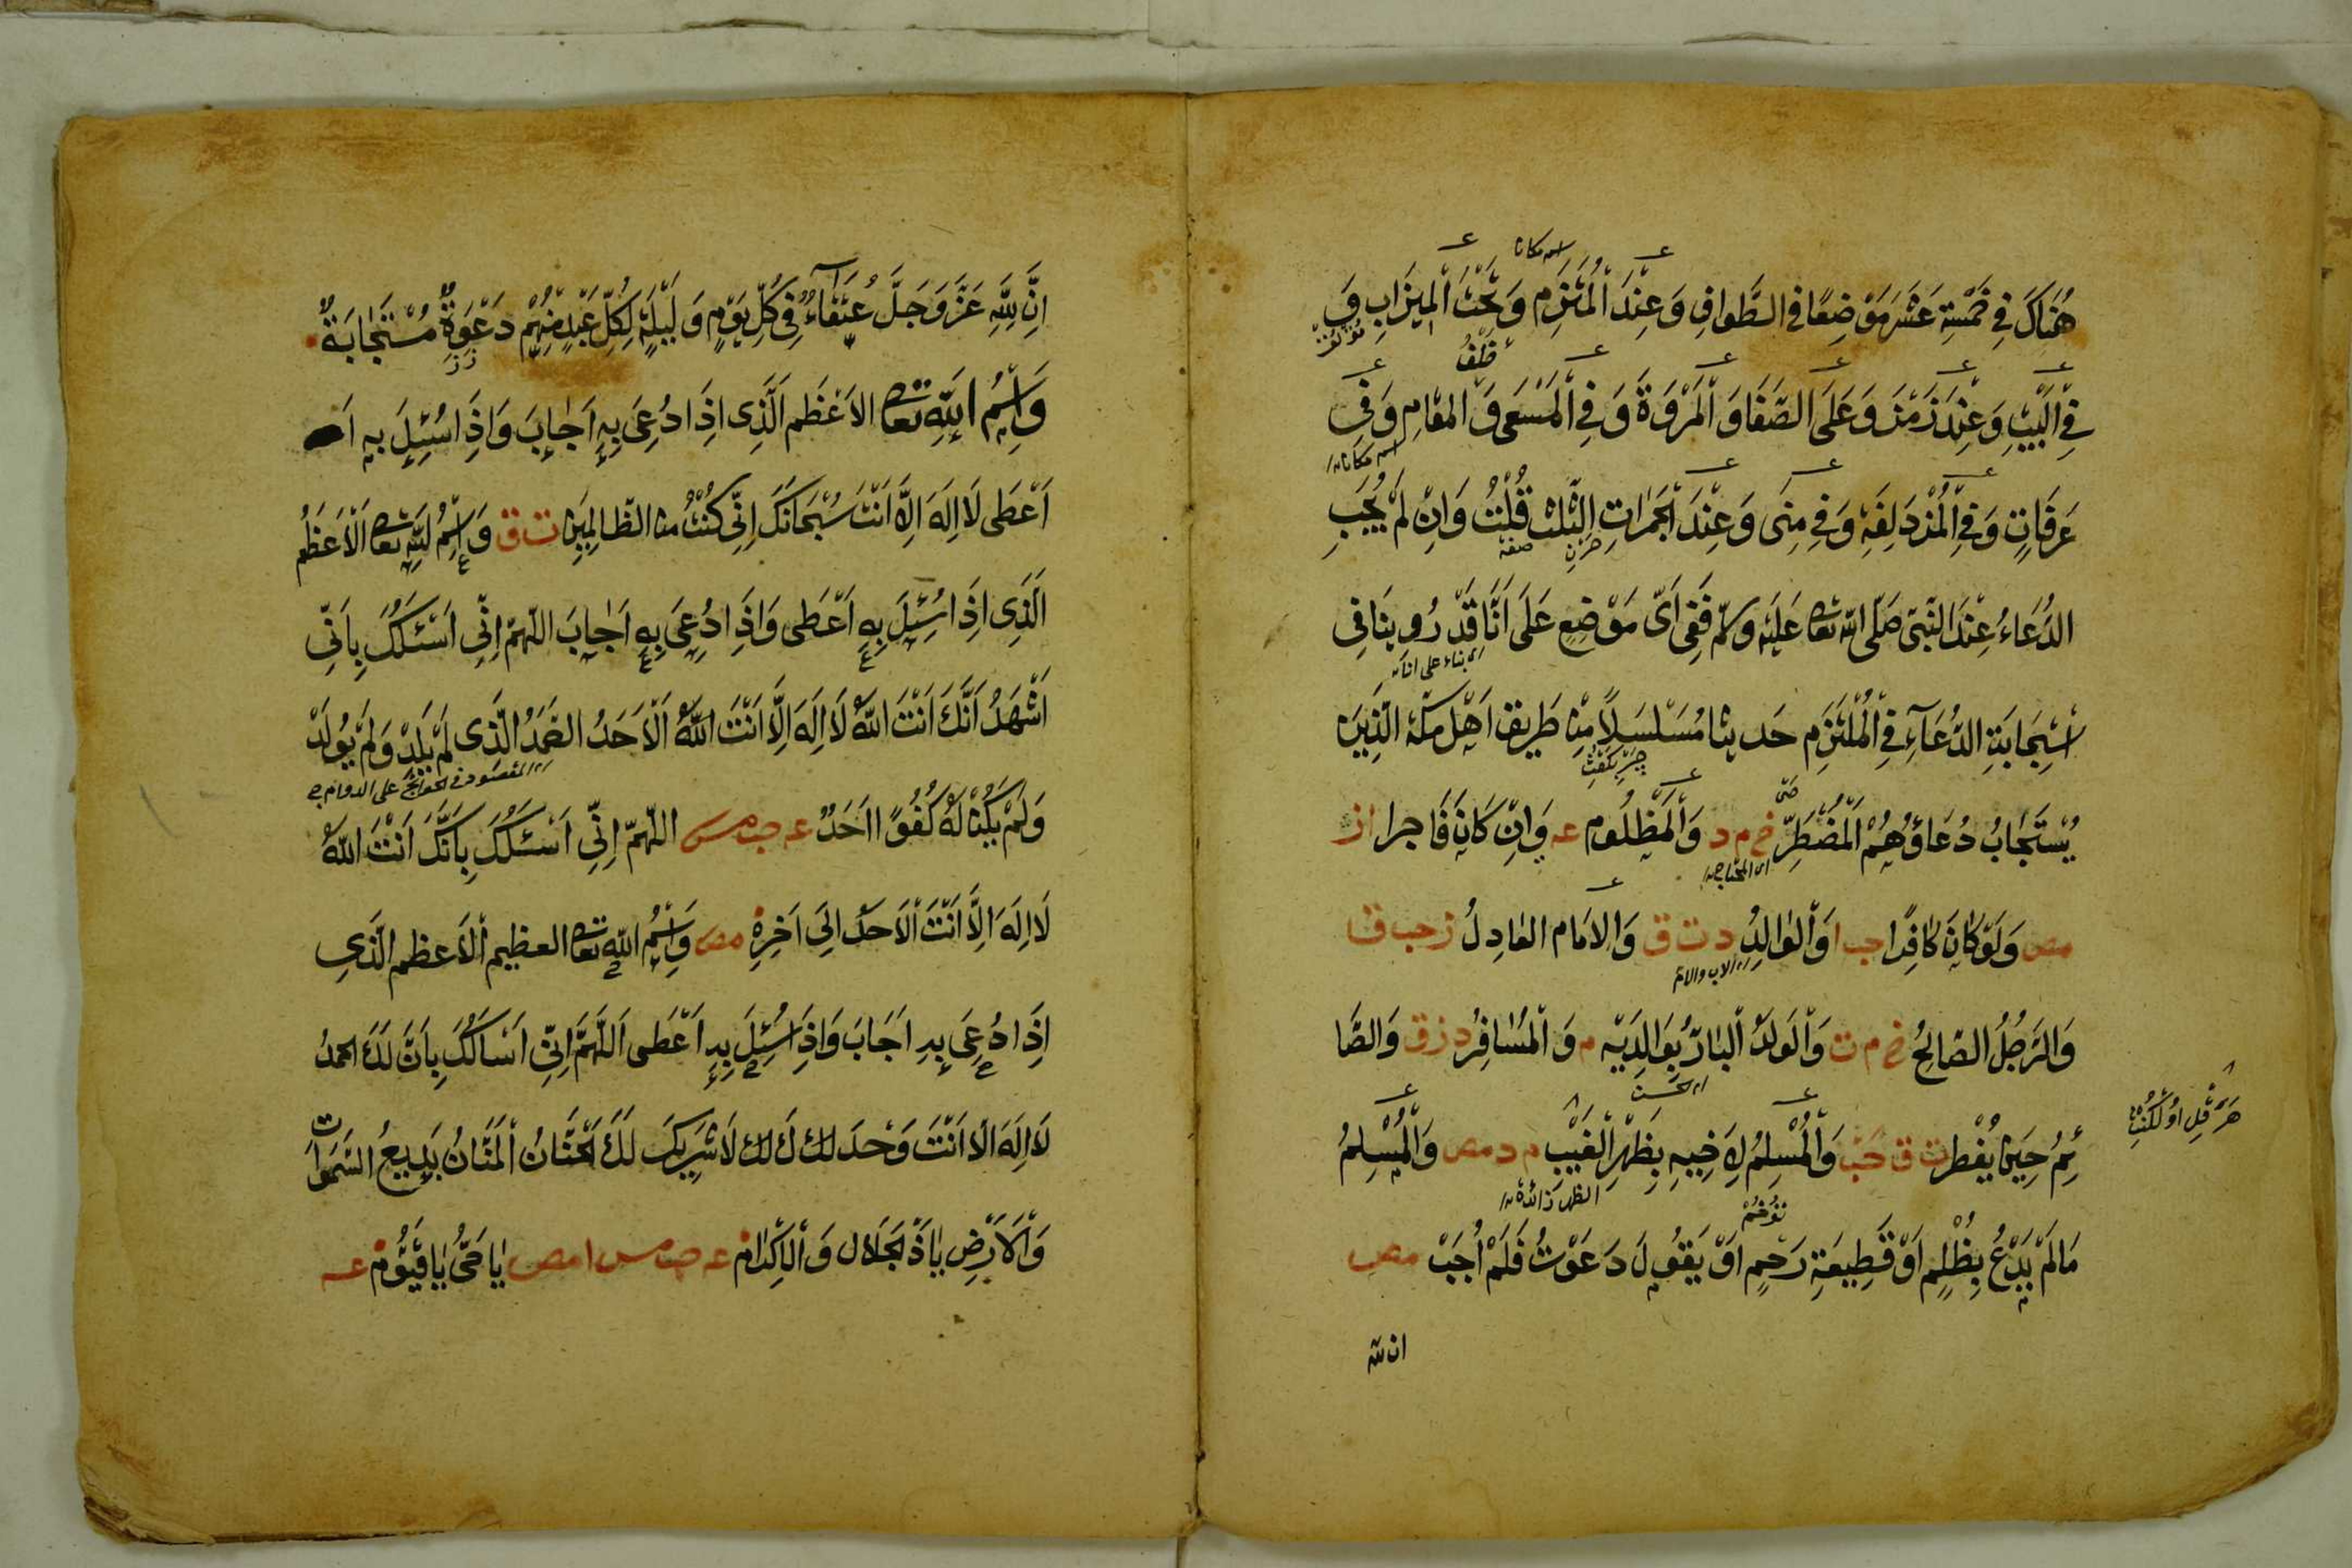 هُنَاكَ فِي خَمْسَةَ عَشَرَ مَوْضِعًا فِي الطَّوَافِ وَعِنْدَ الْمُلْتَزَمِ وَتَحْتَ الْمِيزَابِ وَ
فِي الْبَيْتِ وَعِنْدَ زَمْزَمَ وَعَلَى الصَّفَا وَالْمَرْوَةِ وَفِي الْمَسْعَى وَ خَلْفَ الْمَقَامِ وَفِي
عَرَفَاتٍ وَفِي الْمُزْدَلِفَةِ وَفِي مِنَى وَعِنْدَ الْجَمَرَاتِ الثَّلٰثِ قُلْتُ وَاِنْ لَمْ يُجَبِ
الدُّعَاءُ عِنْدَ النَّبِيِّ صَلَّى اللّٰه تعا عَلَيْهِ وسلّم فَفِي اَيِّ مَوْضِعٍ عَلَى اَنَّا قَدْ رُوِينَا فِي
اسْتِجَابَةِ الدُّعَآءِ فِي الْمُلْتَزَمِ حَدِيثًا مُسَلْسَلاً مِنْ طَرِيقِ اَهْلِ مَكَّةَ الَّذِينَ
يُسْتَجَابُ دُعَاؤُهُمْ الْمُضْطَرُّ خ م د وَالْمَظْلُوم عه وَاِنْ كَانَ فَاجِرا ا ز
مص وَلَوْ كَانَ كَافِرًا حب ا وَالْوَالِدُ د ت ق وَالْاِمَام الْعَادِلُ ت حب ق
وَالرَّجُلُ الصَّالِحُ خ م ت وَالْوَلَدُ الْبَارُّ بِوَالِدَيْهِ م وَالْمُسَافِرُ د ز ق وَالصَّا
ئِمُ حِينَ يُفْطِر ت ق حب وَالْمُسْلِمُ لِاَخِيهِ بِظَهْرِ الْغَيْبِ م د مص وَالْمُسْلِمُ
مَا لَمْ يَدْعُ بِظُلْمٍ اَوْ قَطِيعَةِ رَحِمٍ اَوْ يَقُولُ دَعَوْتُ فَلَمْ اُجَبْ مص
اسم مكان
اى بناء على انا
اى المحتاج
اى الاب والام
الظهر زائدة
ان للّه
اِنَّ لِلّٰهِ عَزَّ وَجَلَّ عُتَقَآءَ فِي كُلِّ يَوْمٍ وَ لَيْلَةٍ لِكُلِّ عَبْدٍ مِنْهُمْ دَعْوَةٌ مُسْتَجَابَةٌ
وَاسْمُ اللّٰهِ تعا الاَعْظَم الَّذِى اِذَا دُعِيَ بِهِ اَجَابَ وَاِذَا سُئِلَ بِهِ اَ
اَعْطَى لَا اِلَهَ اِلَّا اَنْتَ سُبْحَانَكَ اِنِّي كُنْتُ من الظَّالِمِينَ ت ق وَاسْمُ اللّٰهِ تعا الْاَعْظَمُ
الَّذِي اِذَا سُئِلَ بِهِ اَعْطَى وَاِذَا دُعِيَ بِهِ اَجَابَ اللّهمّ اِنِّي اَسْئَلُكَ بِاَنِّي
اَشْهَدُ اَنَّكَ اَنْتَ اللّٰهُ لَا اِلَهَ اِلَّا اَنْتَ اللّٰهُ الْاَحَدُ الصَّمَدُ الَّذِى لَمْ يَلِدْ وَلَمْ يُولَدْ
اى المقصود فى الحوائج على الدوام
وَلَمْ يَكُنْ لَهُ كُفُوًا اَحَدٌ عه حب مس اللّٰهُمَّ اِنِّي اَسْئَلُكَ بِاَنَّكَ اَنْتَ اللّٰهُ
لَا اِلَهَ اِلَّا اَنْتَ الْاَحَدُ اِلَى اٰخِرِهِ مص وَاسْمُ اللّٰهِ تعا العظيم الْاَعظم الَّذِي
اِذَا دُعِيَ بِهِ اَجَابَ وَاِذَا سُئِلَ بِهِ اَعْطَى اَللّٰهُمَّ اِنِّي اَسْاَلُكَ بِاَنَّ لَكَ الحمدُ
لَا اِلَهَ الَّا اَنْتَ وَحْدَك لَا شَرِيكَ لَكَ الْحَنَّانُ الْمَنَّانُ بَدِيعُ السَّمَوَاتِ
وَالْاَرْضِ يَا ذَا الْجَلَالِ وَالْاِكْرَامِ عه حب مس ا مص يَا حَيُّ يَا قَيُّومُ عه